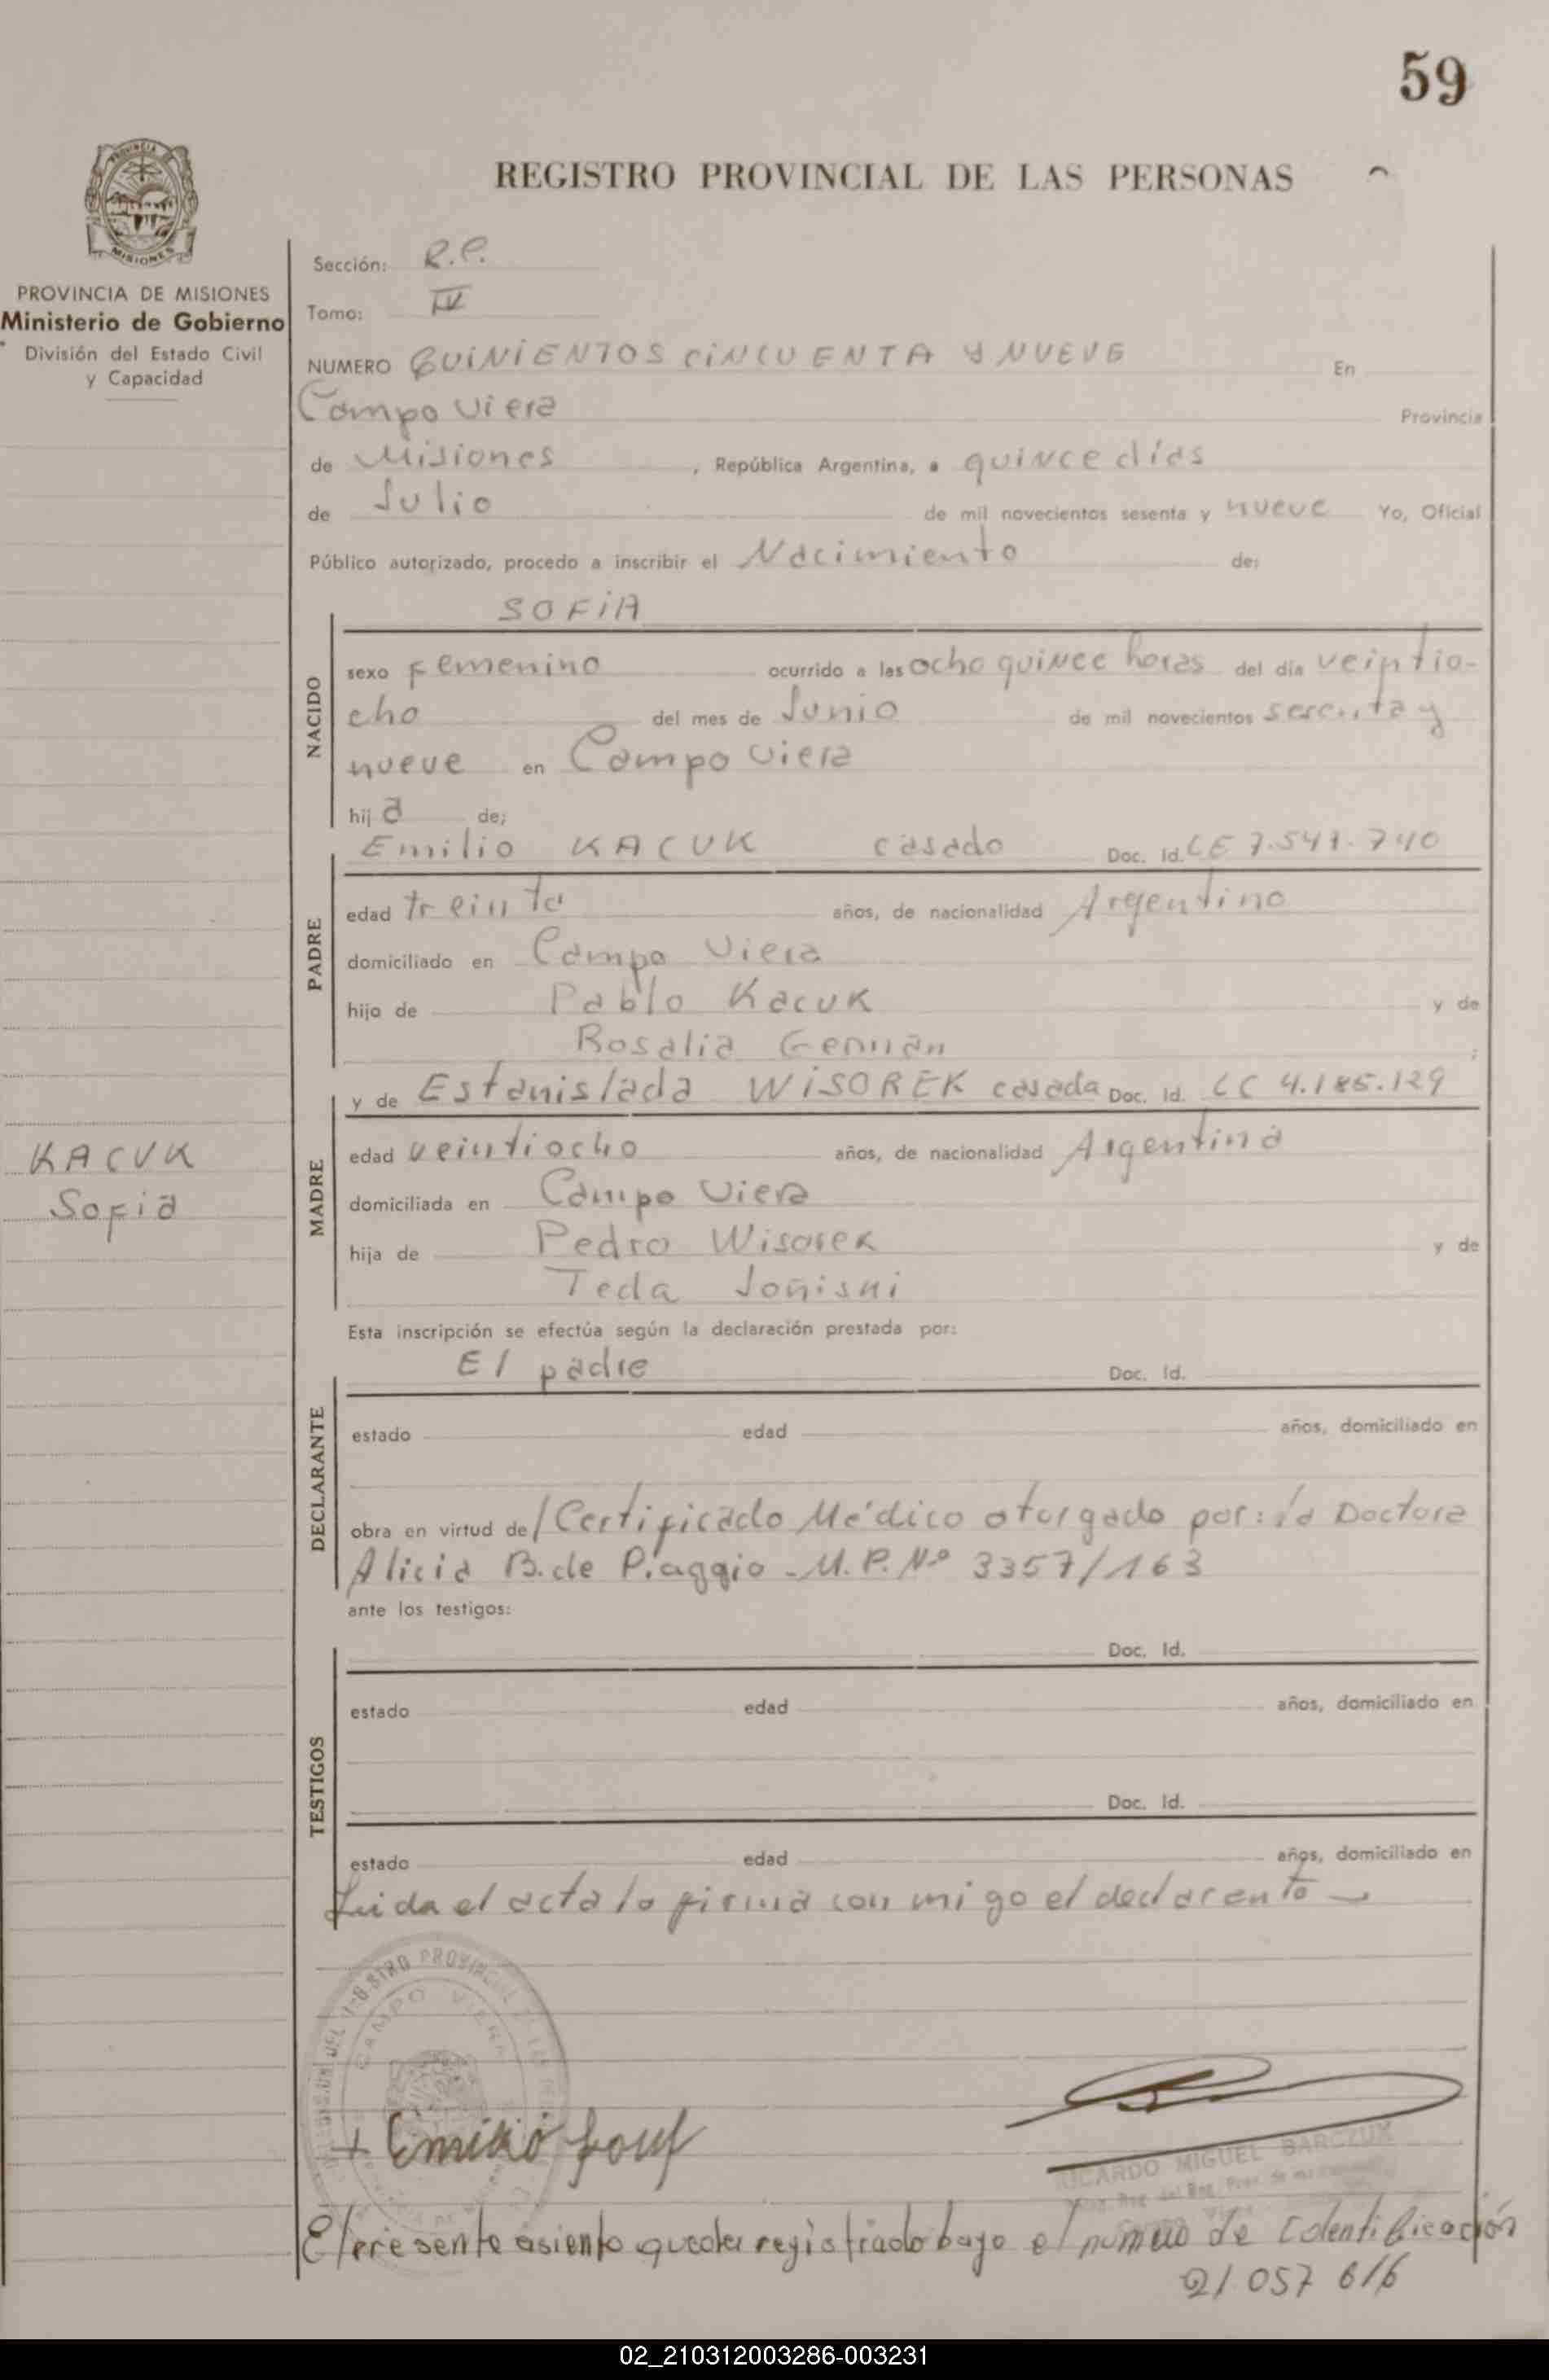 59
REGISTRO PROVINCIAL DE LAS PERSONAS
PROVINCIA DE MISIONES
Ministerio de Gobierno
División del Estado Civil
y Capacidad
Sección: R.P.
Tomo: IV
NUMERO QUINIENTOS CINCUENTA Y NUEVE En
Campo Viera Provincia
de Misiones, República Argentina, a quince días
de Julio de mil novecientos sesenta y nueve Yo, Oficial
Público autorizado, procedo a inscribir el Nacimiento de:
SOFIA
NACIDO
sexo Femenino ocurrido a las ocho quince horas del día veintio-
cho del mes de Junio de mil novecientos sesenta y
nueve en Campo Viera
hija de;
PADRE
Emilio KACUK casado Doc. Id. LE 7.541.740
edad treinta años, de nacionalidad Argentino
domiciliado en Campo Viera
hijo de Pablo Kacuk y de
Rosalia German ;
MADRE
y de Estanislada WISOREK casada Doc. Id. LC 4.185.129
edad veintiocho años, de nacionalidad Argentina
domiciliada en Campo Viera
hija de Pedro Wisorek y de
Tecla
KACUK
Sofia
Esta inscripción se efectúa según la declaración prestada por:
DECLARANTE
El padre Doc. Id.
estado edad años, domiciliado en
obra en virtud de/ Certificado Médico otorgado por: la Doctora
Alicia B. de Piaggio - M.P. Nº 3357/163
ante los testigos:
TESTIGOS
Doc. Id.
estado edad años, domiciliado en
Doc. Id.
estado edad años, domiciliado en
Leida el acta la firma con migo el declarante
CAMPO VIERA
+ Emilio
RICARDO MIGUEL BARCZUK
El presente asiento queda registrado bajo el numero de Identificación
21 057 616
02_210312003286-003231